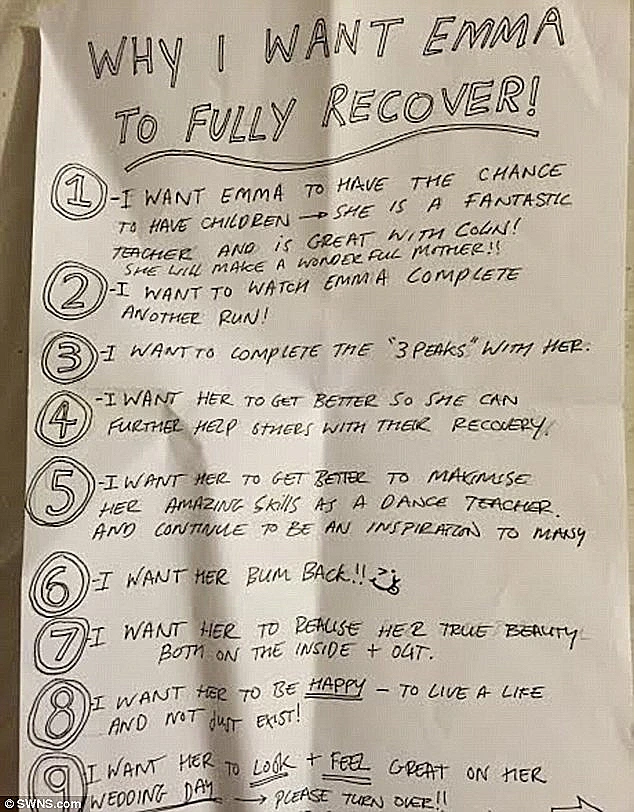 WHY I WANT EMMA
TO FULLY RECOVER!
1 - I WANT EMMA TO HAVE THE CHANCE
TO HAVE CHILDREN → SHE IS A FANTASTIC
TEACHER AND IS GREAT WITH COLIN!
SHE WILL MAKE A WONDERFUL MOTHER!!
2 - I WANT TO WATCH EMMA COMPLETE
ANOTHER RUN!
3 - I WANT TO COMPLETE THE "3 PEAKS" WITH HER.
4 - I WANT HER TO GET BETTER SO SHE CAN
FURTHER HELP OTHERS WITH THEIR RECOVERY.
5 - I WANT HER TO GET BETTER TO MAXIMISE
HER AMAZING SKILLS AS A DANCE TEACHER.
AND CONTINUE TO BE AN INSPIRATION TO MANY
6 - I WANT HER BUM BACK!!
7 - I WANT HER TO REALISE HER TRUE BEAUTY
BOTH ON THE INSIDE + OUT.
8 - I WANT HER TO BE HAPPY - TO LIVE A LIFE
AND NOT JUST EXIST!
9 I WANT HER TO LOOK + FEEL GREAT ON HER
WEDDING DAY → PLEASE TURN OVER!!
© SWNS.com